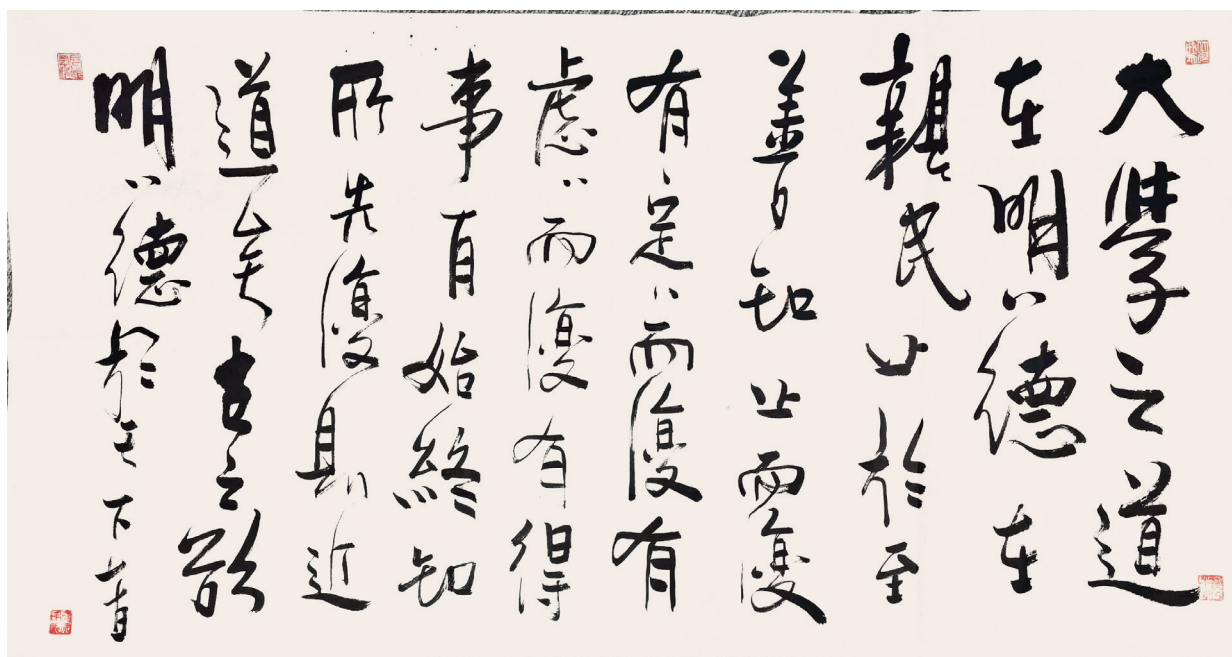 大學之道
在明〻德在
親民止於至
善曰知止而復
有定〻而復有
慮〻而復有得
事有始終知
所先復則近
道矣古之欲
明〻德於天下者